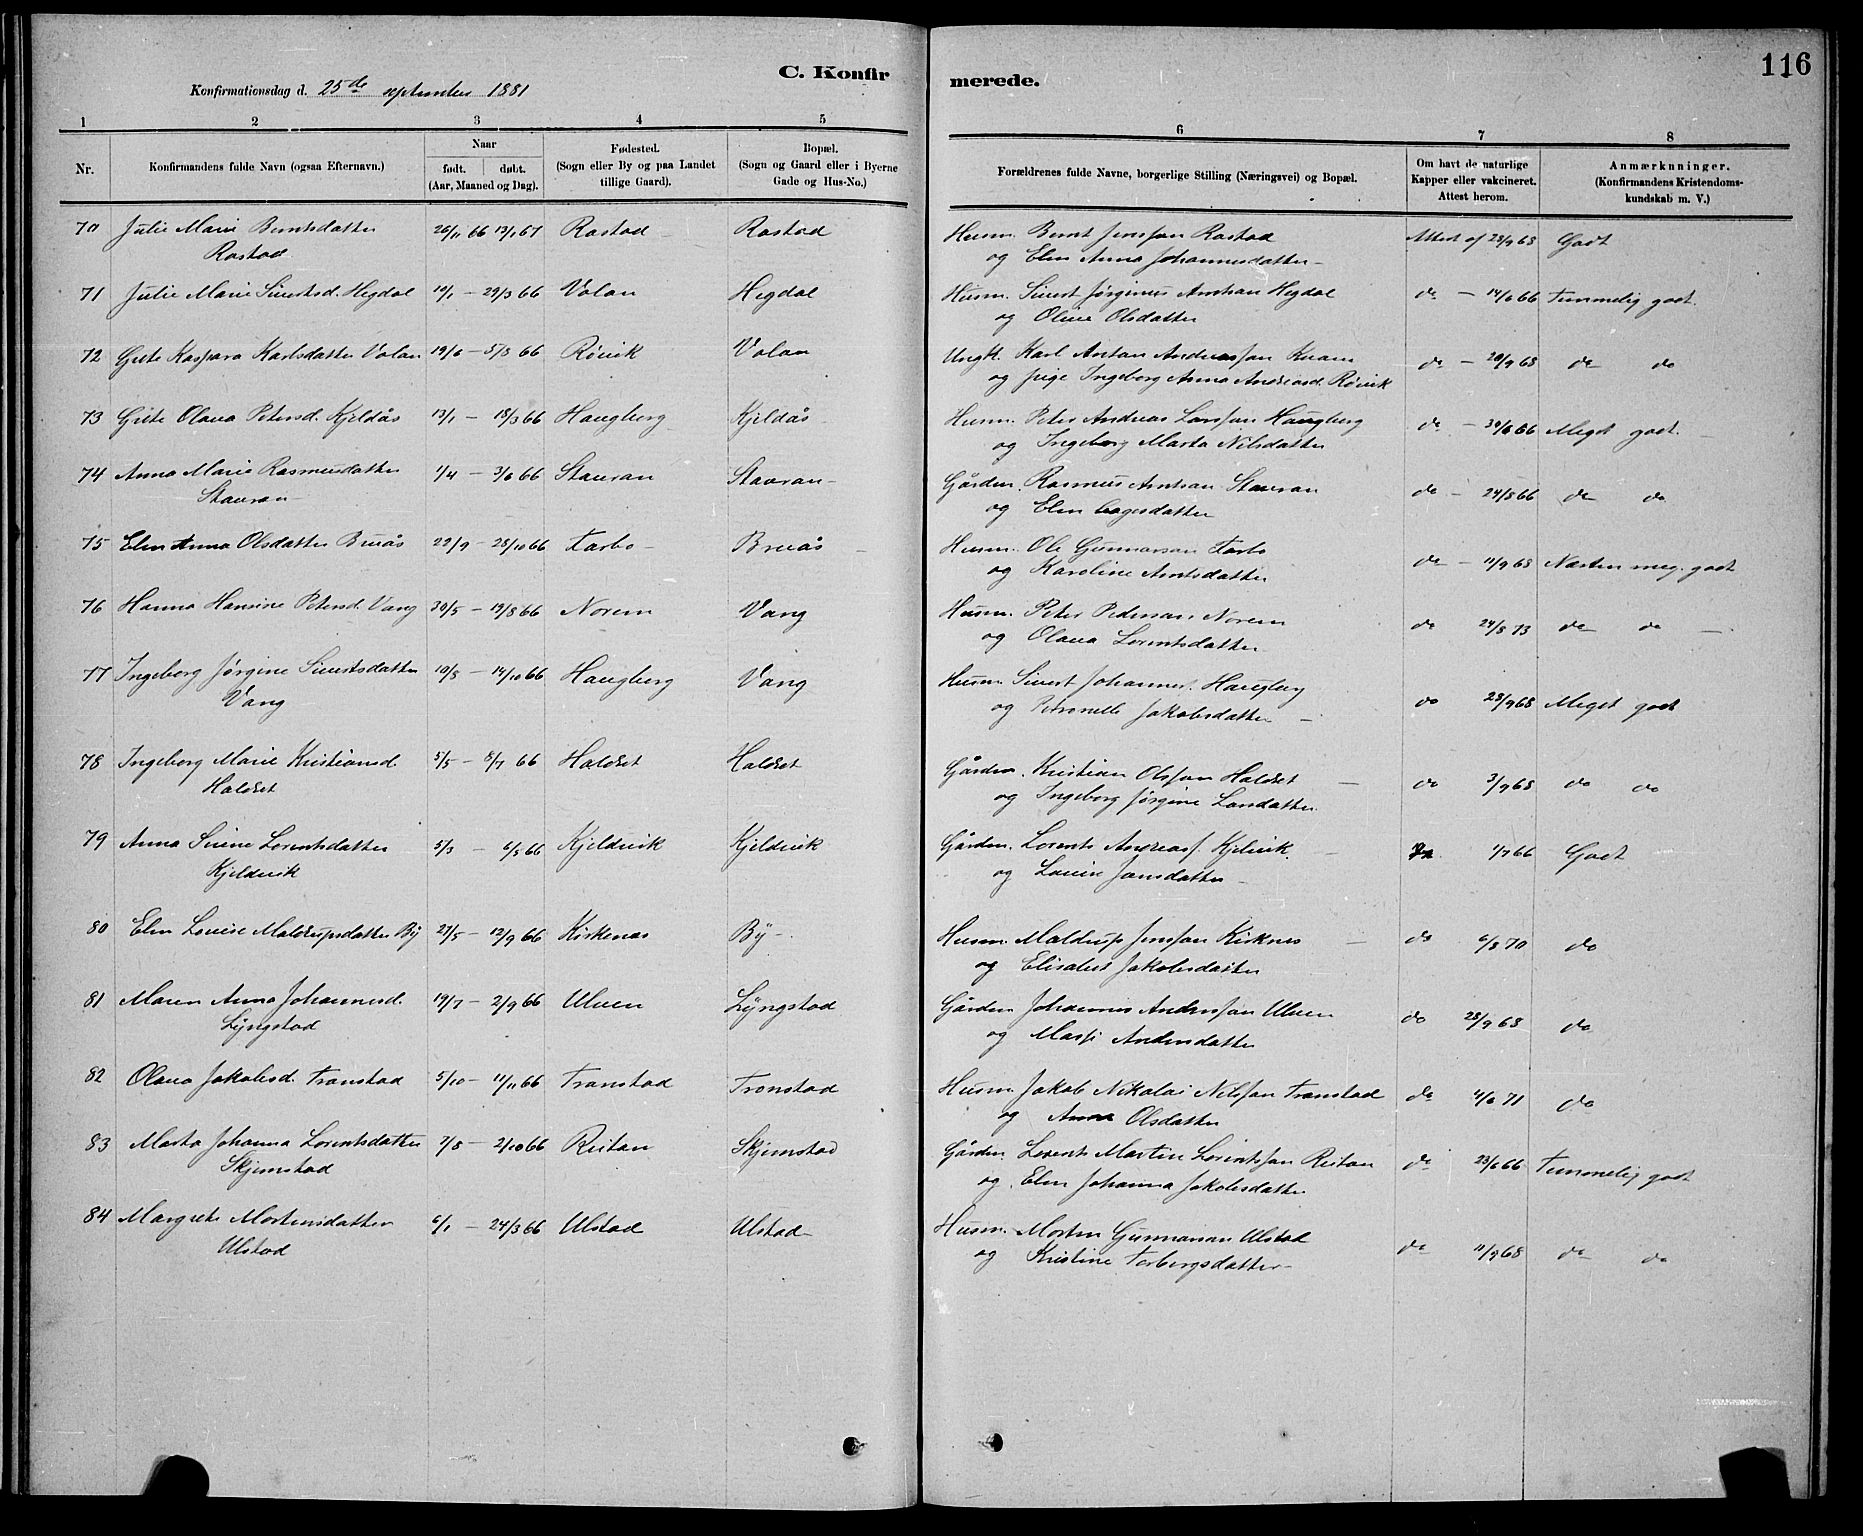 116
C. Konfirmerede.
Konfirmationsdag d. 25de september 1881
1 2 3 4 5 6 7 8
Nr. Konfirmandens fulde Navn (ogsaa Efternavn). Naar født. døbt. (Aar, Maaned og Dag). Fødested. (Sogn eller By og paa Landet tillige Gaard). Bopæl. (Sogn og Gaard eller i Byerne Gade og Hus-No.) Forældrenes fulde Navne, borgerlige Stilling (Næringsvei) og Bopæl. Om havt de naturlige Kapper eller vakcineret. Attest herom. Anmærknninger. (Konfirmandens Kristendomskundskab m. V.)
70 Julie Marie Berntsdatter 26/11 66 13/1 67 Rostad Rostad Husm. Bernt Jensen Rostad Attest af 28/9 68 Godt
Rostad og Elen Anna Johannesdatter
71 Julie Marie Sivertsd. Hegdal 10/1 – 29/3 66 Volan Hegdal Husm. Sivert Jørginus Arntsan Hegdal do – 14/6 66 Temmelig godt.
og Oline Olsdatter
72 Grete Kaspara Karlsdatter Volan 19/6 – 5/8 66 Røvik Volan Ungk. Karl Antan Andreasson Kvam do – 20/9 68 do do
og pige Ingeborg Anna Andreasd. Røvik
73 Grete Olava Petersd. Kjeldås 13/1 – 18/3 66 Haugberg Kjeldås Husm. Peter Andreas Larsson Haugberg do – 30/6 66 Meget godt.
og Ingeborg Marta Nilsdatter
74 Anna Marie Rasmusdatter 1/4 – 3/6 66 Stavran Stavran Gårdm. Rasmus Arntsan Stavran do – 24/8 66 do do
Stavran og Elen Aagesdatter
75 Elen Anna Olsdatter Bruås 22/9 – 28/10 66 Tarbo Bruås Husm. Ole Gunnarsan Tarbo do – 11/9 68 Næsten meg. godt
og Karoline Arntsdatter
76 Hanna Hansine Petersd. Vang 30/5 – 19/8 66 Norem Vang Husm. Peter Pedersan Norem do 24/8 73 do do
og Olava Lorentsdatter
77 Ingeborg Jørgine Sivertsdatter 19/8 – 14/10 66 Haugberg Vang Husm. Sivert Johannes. Haugberg do 28/9 68 Meget godt
Vang og Petronelle Jakobsdatter
78 Ingeborg Marie Kristiansd. 5/5 – 8/7 66 Haldset Haldset Gårdm. Kristian Olsson Haldset do 3/9 68 do do
Haldset og Ingeborg Jørgine Larsdatter
79 Anna Sirene Lorentsdatter 5/3 – 6/5 66 Kjeldvik Kjeldvik Gårdm. Lorents Andreass. Kjelvik. Ja 1/7 66 Godt
Kjeldvik og Lovise Jonsdatter
80 Elen Lovise Maldrupsdatter By 27/5 – 12/9 66 Kirkenas By Husm. Maldrup Jensson Kirknes do 6/8 70 do
og Elisabet Jakobsdatter
81 Maren Anna Johannesd. 19/7 – 2/9 66 Ulven Lyngstad Gårdm. Johannes Andersson Ulven do 28/9 68 do
Lyngstad og Massi Andersdatter
82 Olava Jakobsd. Tronstad 5/10 – 11/11 66 Tronstad Tronstad Husm. Jakob Nikolai Nilsson Tronstad do 4/6 71 do
og Anna Olsdatter
83 Marta Johanna Lorentsdatter 7/8 – 2/10 66 Reitan Skjemstad Gårdm. Lorents Martin Lorentsson Reitan do 23/6 66 Temmelig godt
Skjemstad og Elen Johanna Jakobsdatter
84 Margrete Mortensdatter 6/1 – 24/3 66 Ulstad Ulstad Husm. Morten Gunnarsan Ulstad do 11/9 68 do do
Ulstad og Kristine Torbergsdatter